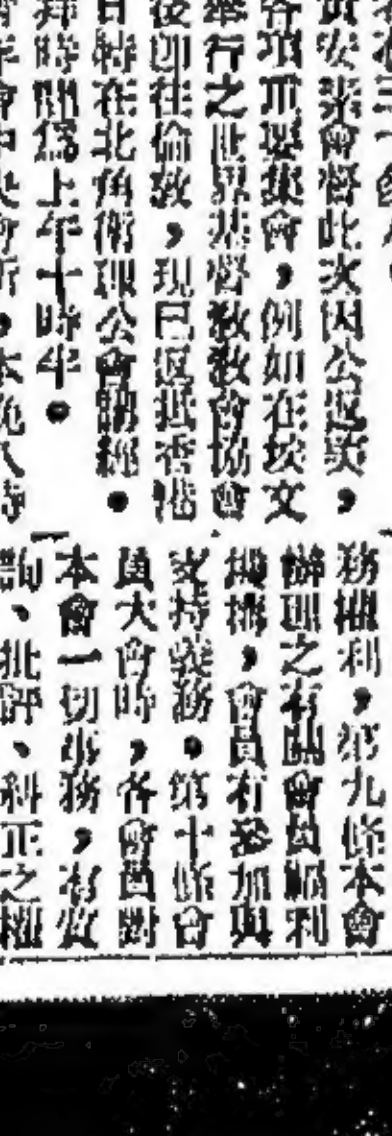 安來會督此次因公返英，
各項重要集會，例如在埃文
舉行之世界基督教教會協會
後即往倫敦，現已返抵香港
日特在北角衛理公會講經。
拜時間爲上午十時半。
務權利，第九條本會
辦理之有關會員福利
機構，會員有參加與
支持義務。第十條會
員大會時，各會員對
本會一切事務，有質
詢、批評、糾正之權